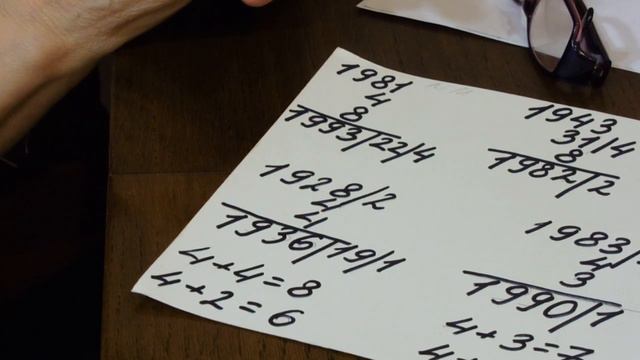 1981
4
8
1993/22/4
1928/2
4
4
1936/19/1
4+4=8
4+2=6
1943
31/4
8
1982/2
1983/
4
3
1990/1
4+3=7